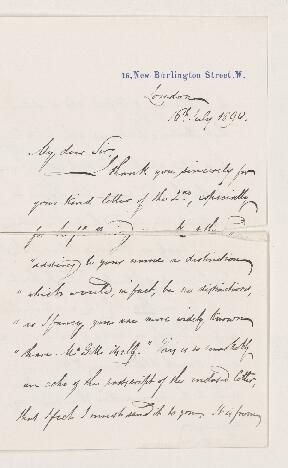 16, New Burlington Street, W.
London
16th July 1890.
My dear Sir,
I thank you sincerely for
your kind letter of the 2nd, especially
for
to your name a distinction
"which would, in fact, be no distinction,
"as I fancy, you are more widely known
"than Mr itself." This is so
an echo of the postscript of the enclosed letter,
that I feel I must send it to you. It is from